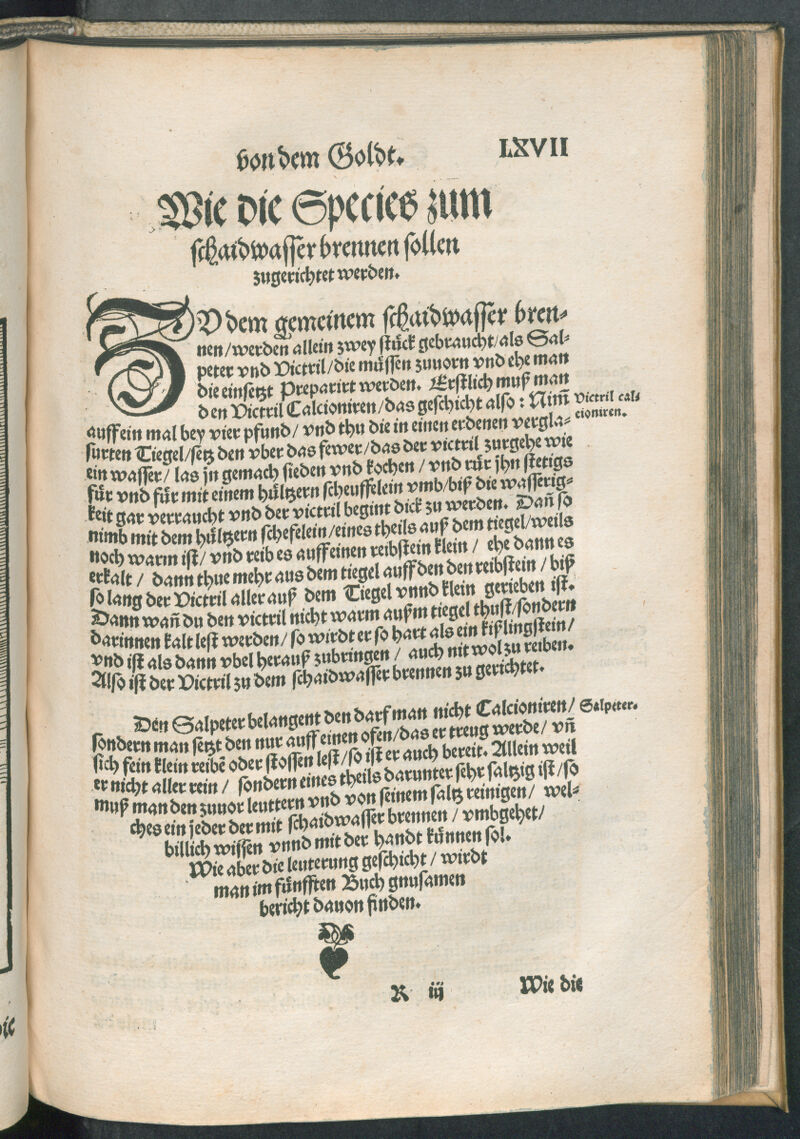 von dem Goldt. LXVII
Wie die Species zum
schaidwasser brennen sollen
zugerichtet werden.
ZV dem gemeinem schaidwasser bren-
nen/werden allein zwey stück gebraucht/als Sal-
peter vnd Victril/die müssen zuuorn vnd ehe man
die einsetzt Preparirt werden. Erstlich muß man
den Victril Calcioniren/das geschicht also: Nim̄
Victril cal-
cioniren.
auff ein mal bey vier pfund/ vnd thu die in einen erdenen vergla-
surten Tiegel/setz den vber das fewer/das der victril zurgehe wie
ein wasser/ las jn gemach sieden vnd kochen/ vnd rür jhn stetigs
für vnd für mit einem hültzern scheuffelein vmb/biß die wasserig-
keit gar verraucht vnd der victril begint dick zu werden. Dan̄ so
nimb mit dem hültzern schefelein/eines theils auß dem tiegel/weils
noch warm ist/ vnd reib es auff einen reibstein klein/ ehe dann es
erkalt/ dann thue mehr aus dem tiegel auff den den reibstein/ biß
so lang der Victril aller auß dem Tiegel vnnd klein gerieben ist.
Dann wan̄ du den victril nicht warm außm tiegel thust/sondern
darinnen kalt lest werden/ so wirdt er so hart als ein kißlingstein/
vnd ist als dann vbel herauß zubringen/ auch nit wol zu reiben.
Also ist der Victril zu dem schaidwasser brennen zu gerichtet.
Den Salpeter belangent den darf man nicht Calcioniren/
Salpeter.
sondern man setzt den nur auff einen ofen/das er treug werde/ vn̄
sich fein klein reibē oder stossen lest/so ist er auch bereit. Allein weil
er nicht aller rein/ sondern eines theils darunter sehr saltzig ist/so
muß man den zuuor leuttern vnd von seinem saltz reinigen/ wel-
ches ein jeder der mit schaidwasser brennen/ vmbgehet/
billich wissen vnnd mit der handt künnen sol.
Wie aber die leuterung geschicht/ wirdt
man im fünfften Buch gnusamen
bericht dauon finden.
R iij Wie die